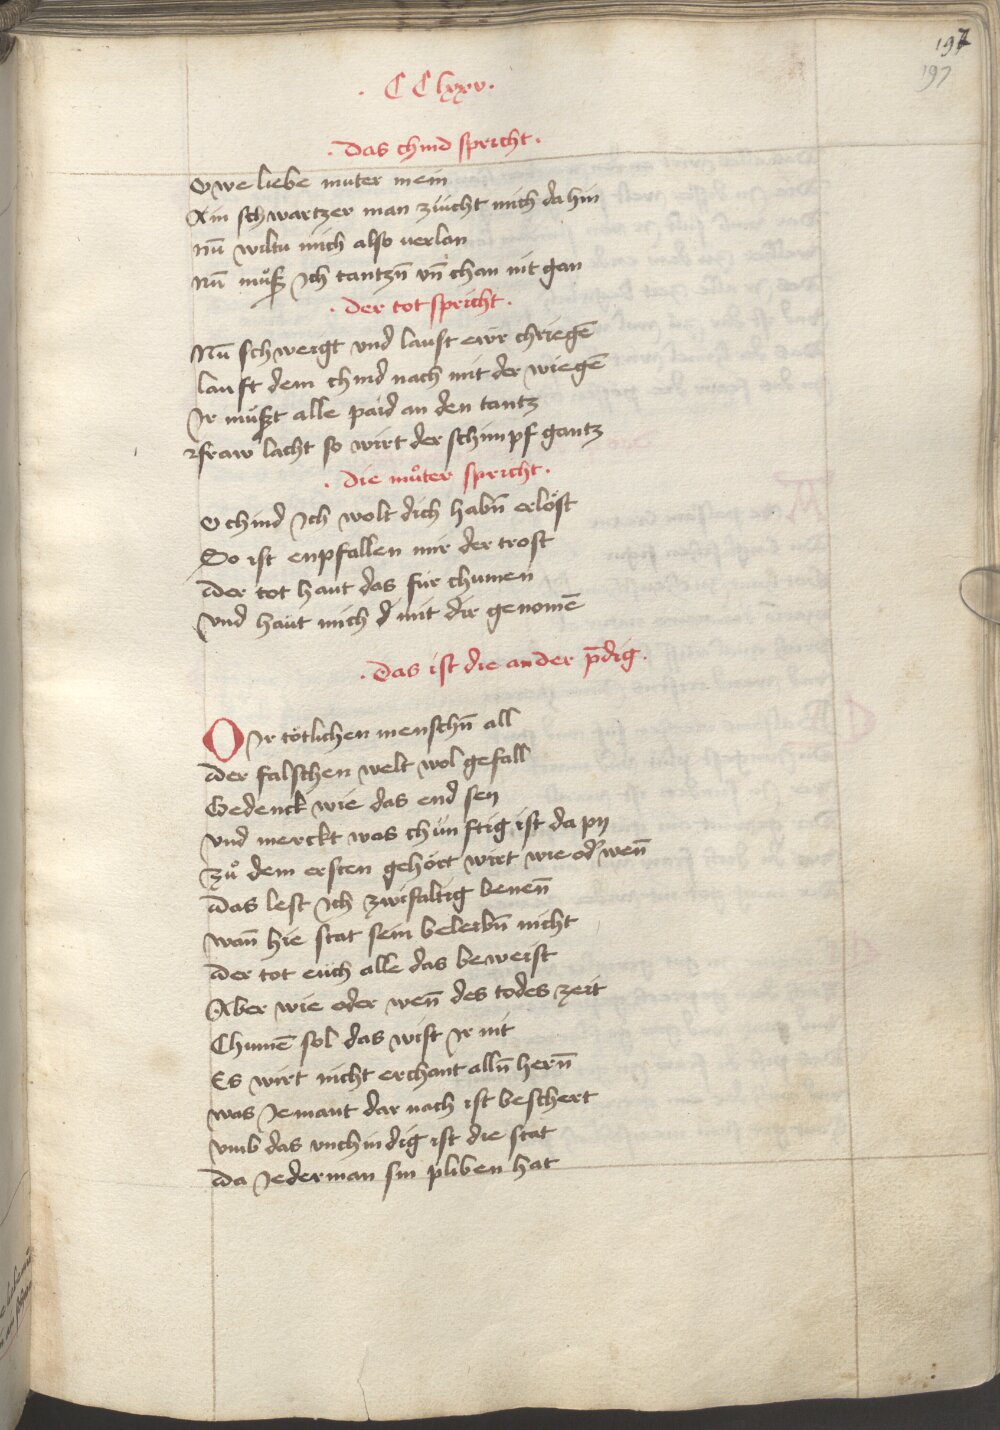 197
197
· CC lxxv ·
· Das chind spricht ·
O we liebe muter mein
Ain schwartzer man zücht mich da hin
nū wiltu mich also verlan
nū muͦsz Ich tantzn̄ vn̄ chan nit gan
· Der tot spricht ·
Nū schweigt vnd lauft ewr chriegē
lauft dem chind nach mit der wiegē
Ir muͤszt alle paid an den tantz
fraw lacht so wirt der schimpf gantz
· Die muͦter spricht ·
O chind Ich wolt dich habn̄ erlöst
So ist enpfallen mir der trost
Der tot haut das für chumen
Vnd haüt mich d mit dir genomē
· Das ist die ander p̄dig ·
O Ir tötlichen menschn̄ all
Der falschen welt wol gefall
Gedenck wie das end sey
vnd merckt was chünftig ist da py
Zuͦ dem ersten gehört wirt wie od' wen̄
Das lest Ich zwifaltig benen̄
wan̄ hie stat sein beleibn̄ nicht
Der tot eüch alle das beweist
Aber wie oder wen̄ des todes zeit
Chumē sol das wist Ir nit
Es wirt nicht erchant alln̄ hern̄
was Iemant dar nach ist beschert
vmb das vnchindig ist die stat
Da Iederman sin pliben hat